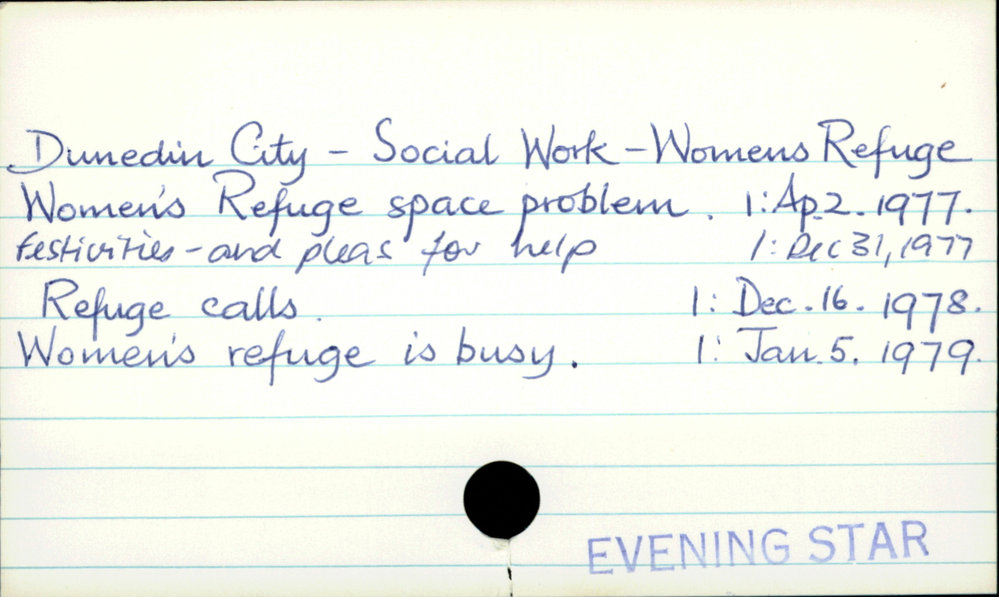 Dunedin City - Social Work - Womens Refuge
Women's Refuge space problem. 1: Ap. 2. 1977.
festivities - and pleas for help 1: Dec 31, 1977
Refuge calls. 1: Dec. 16. 1978.
Women's refuge is busy. 1: Jan. 5. 1979.
EVENING STAR